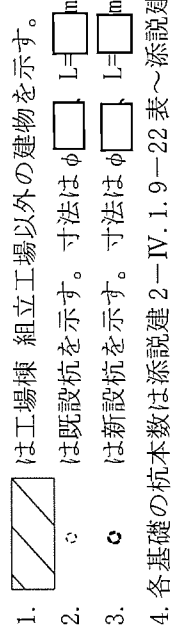 1. は工場棟 組立工場以外の建物を示す。
2. は既設杭を示す。寸法はφ L= m
3. は新設杭を示す。寸法はφ L= m
4. 各基礎の杭本数は添説建 2－Ⅳ.1.9－22 表～添説建